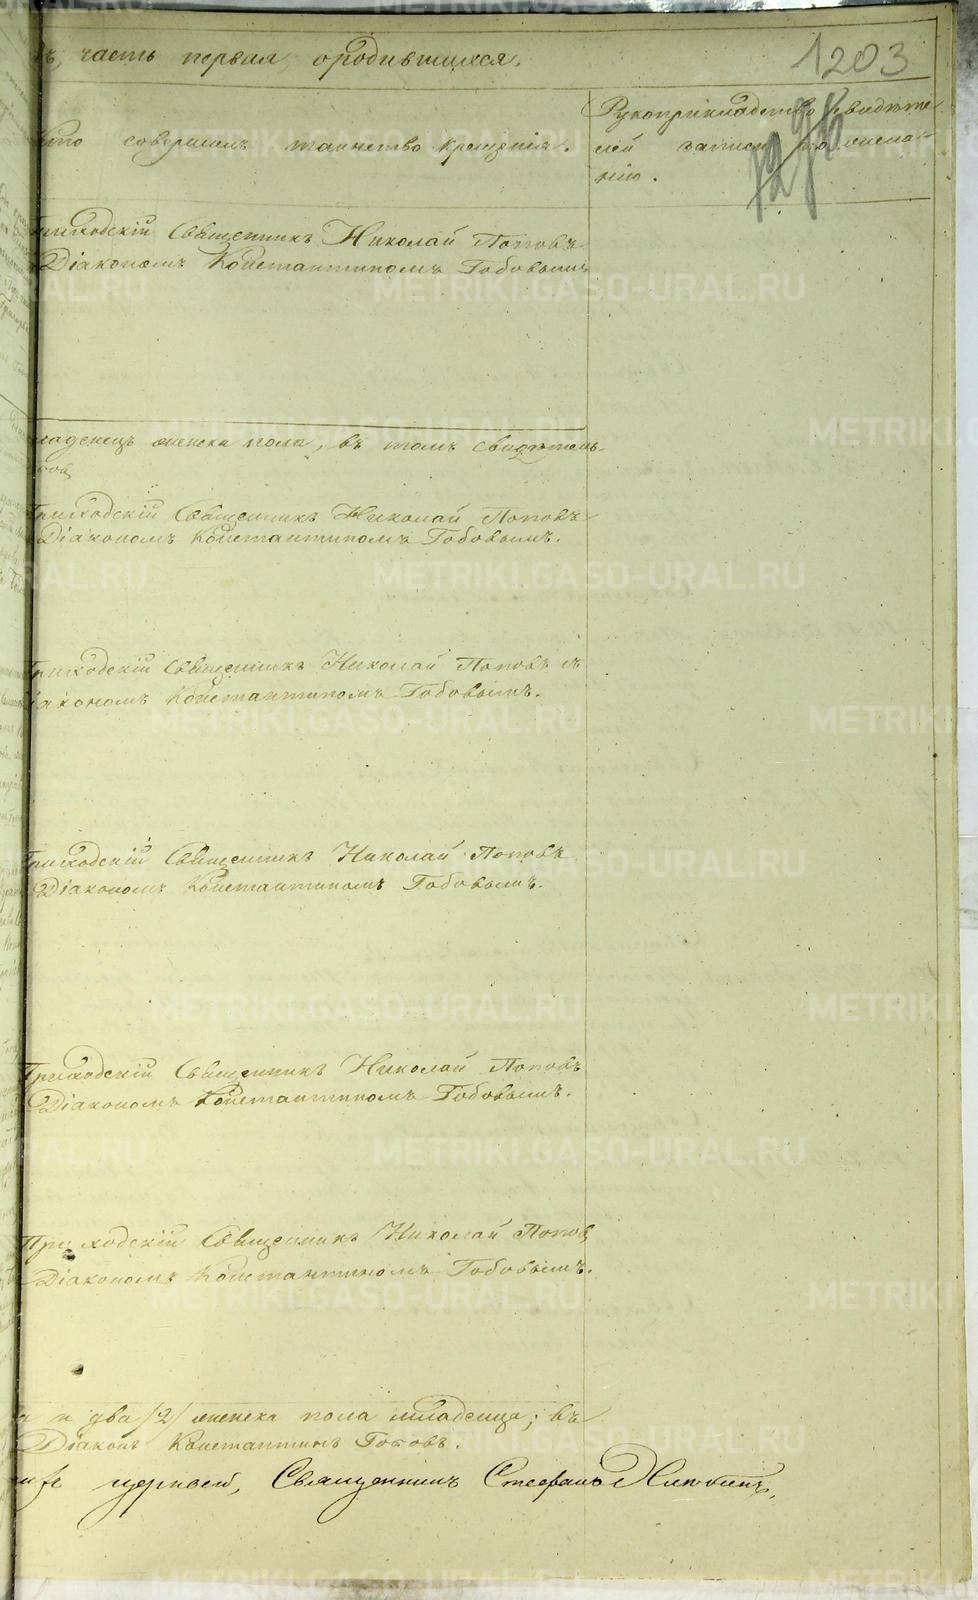 ъ, часть первая, ородившихся.
1203
Кто совершалъ таинство крещенія.
Рукоприкладство свидѣте
лей записи по жела
нію.
Приходскій Священникъ Николай Поповъ
Діакономъ Константиномъ Гобовымъ
младенецъ женска пола, въ томъ свидѣтель-
Приходскій Священникъ Николай Поповъ
Діакономъ Константиномъ Гобовымъ.
Приходскій Священникъ Николай Поповъ съ
Діакономъ Константиномъ Гобовымъ.
Приходскій Священникъ Николай Поповъ
Діакономъ Константиномъ Гобовымъ.
Приходскій Священникъ Николай Поповъ
Діакономъ Константиномъ Гобовымъ.
Приходскій Священникъ Николай Попов
Діакономъ Константиномъ Гобовымъ.
и два /2/ женска пола младенца; въ
Діаконъ Константинъ Гобовъ.
церквей, Священникъ Стефанъ
METRIKI.GASO-URAL.RU